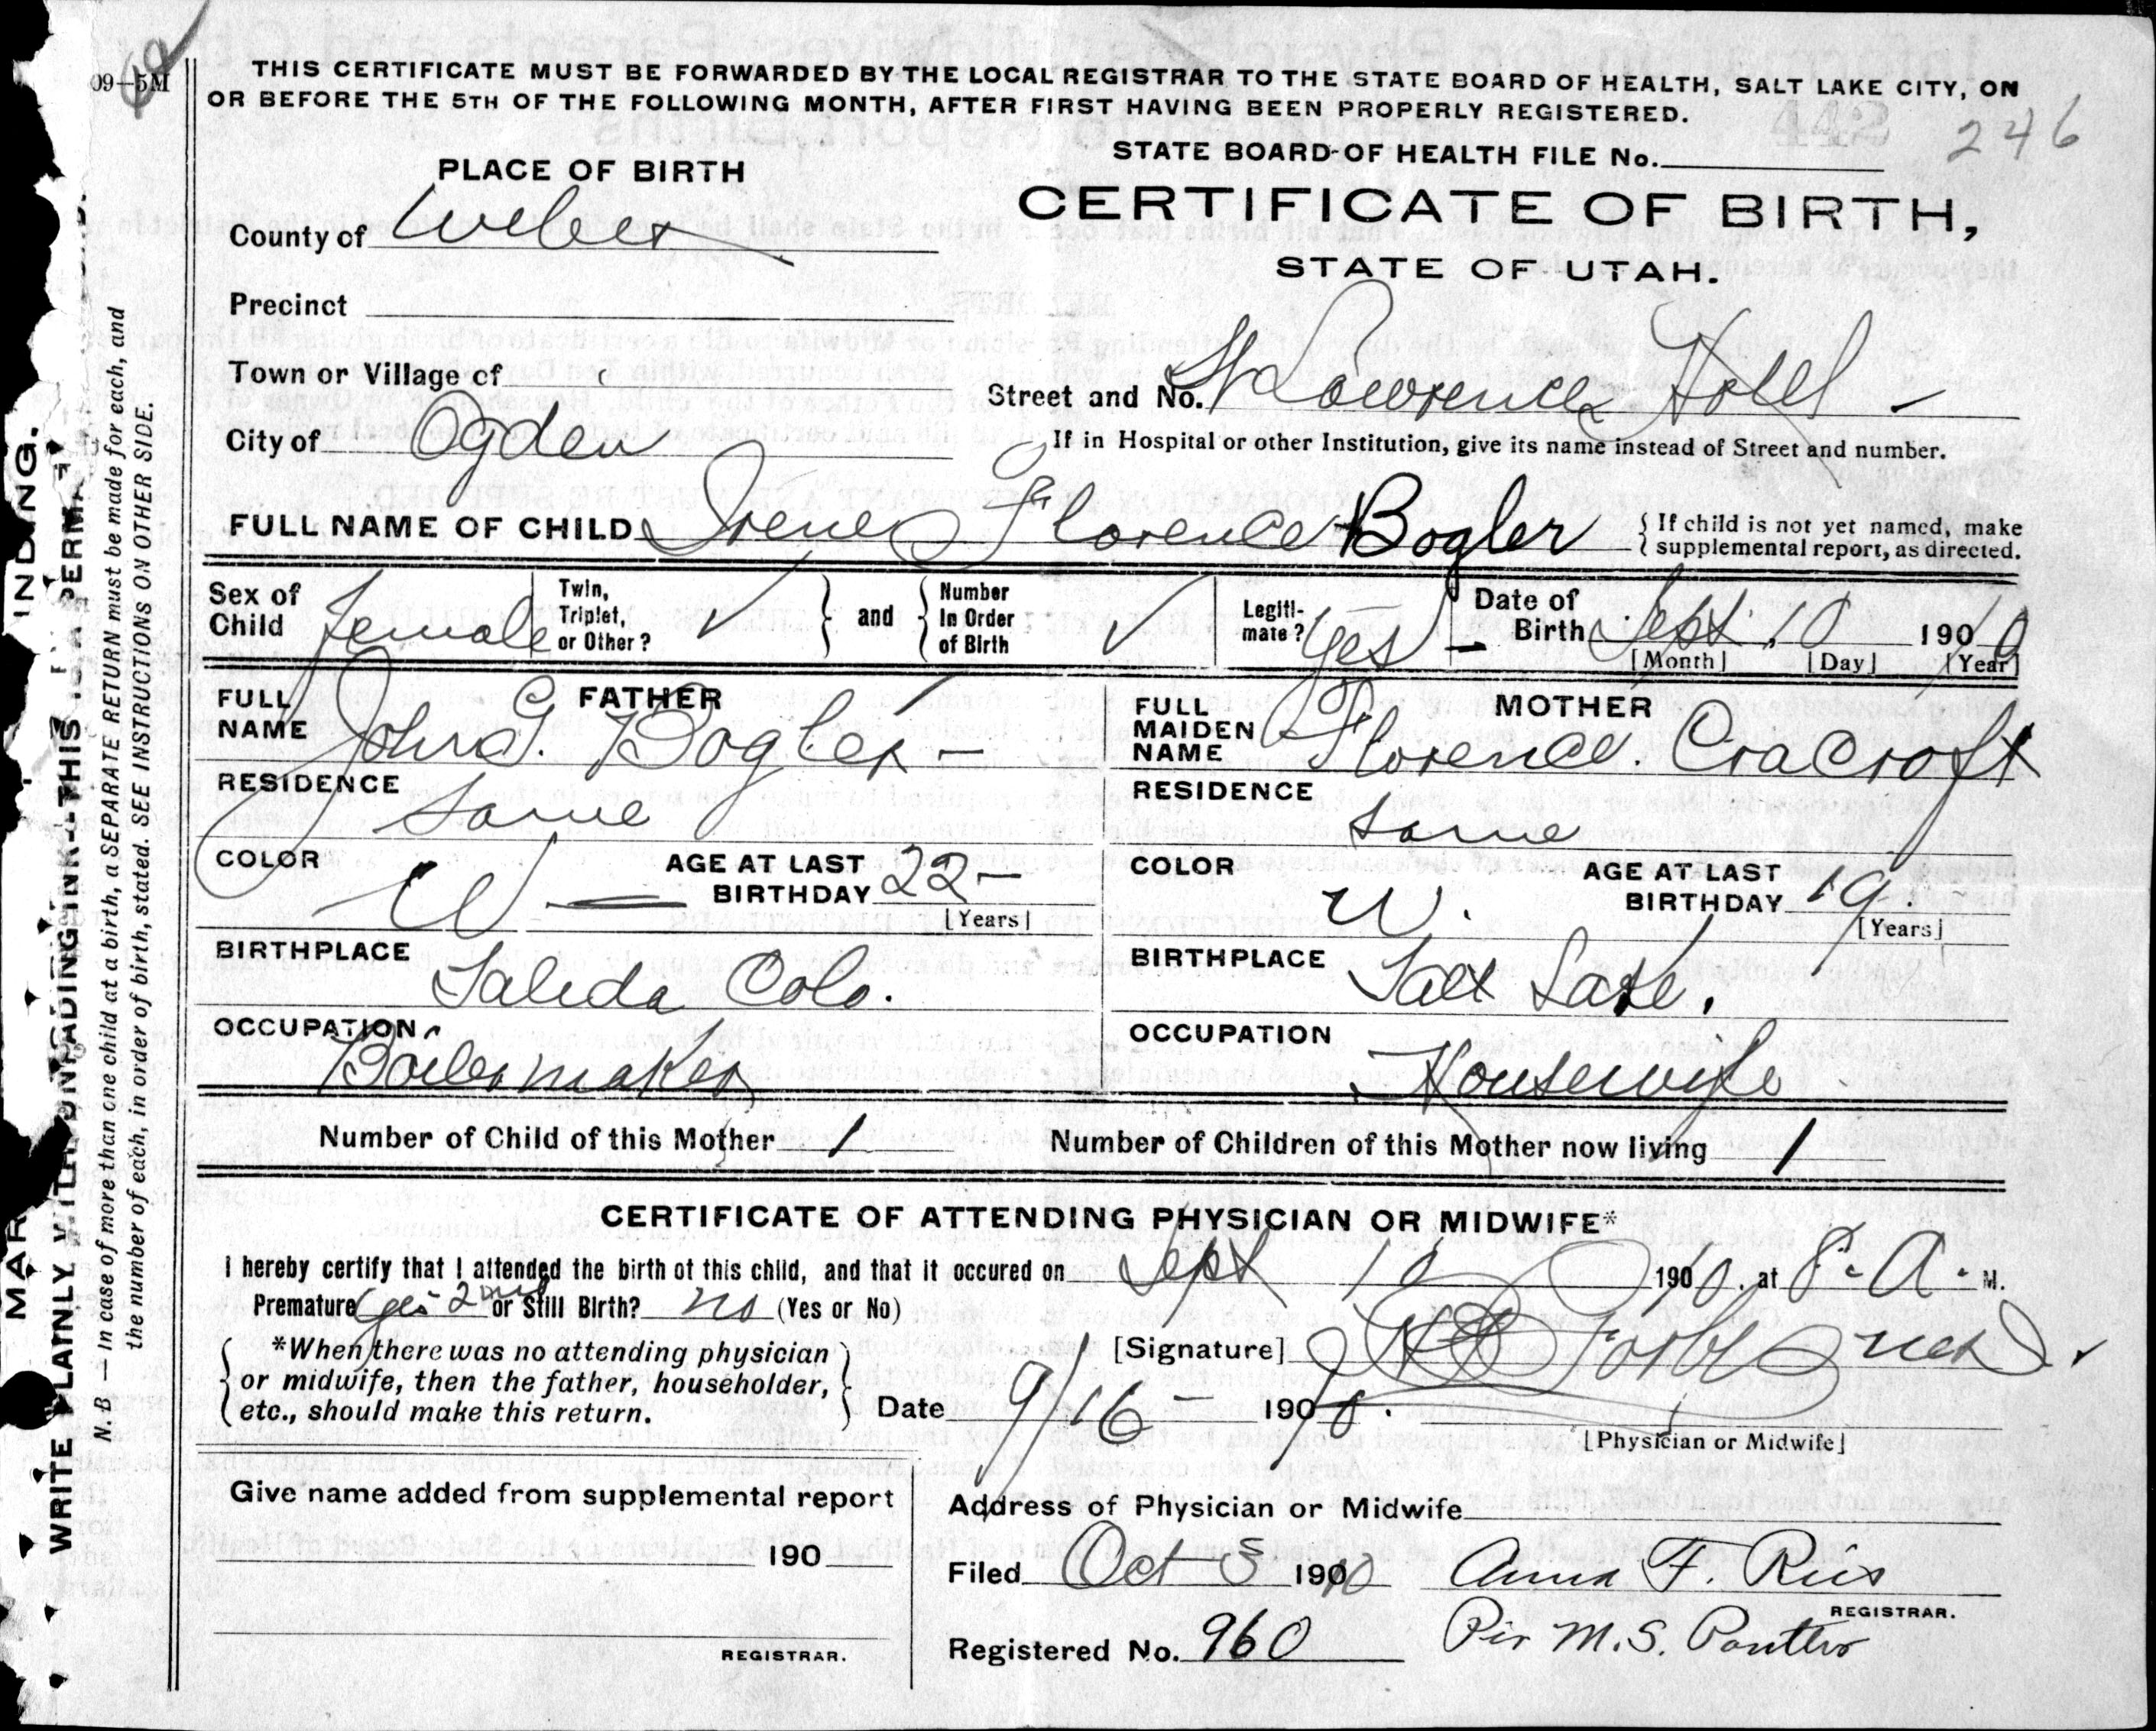 09-5M
THIS CERTIFICATE MUST BE FORWARDED BY THE LOCAL REGISTRAR TO THE STATE BOARD OF HEALTH, SALT LAKE CITY, ON
OR BEFORE THE 5TH OF THE FOLLOWING MONTH, AFTER FIRST HAVING BEEN PROPERLY REGISTERED.
442 246
STATE BOARD OF HEALTH FILE No.
PLACE OF BIRTH
CERTIFICATE OF BIRTH,
STATE OF UTAH.
County of Weber
Precinct
Town or Village of
Street and No. St Lawrence Hotel -
City of Ogden
If in Hospital or other Institution, give its name instead of Street and number.
FULL NAME OF CHILD Irene Florence Bogler { If child is not yet named, make
supplemental report, as directed.
Sex of Child Female Twin, Triplet, or Other? ✓ } and { Number In Order of Birth ✓ Legiti-mate? Yes - Date of Birth Sept. 10 1910
[Month] [Day] [Year]
FATHER
FULL NAME John G. Bogler -
MOTHER
FULL MAIDEN NAME Florence. Cracroft
RESIDENCE Same
RESIDENCE same
COLOR W - AGE AT LAST BIRTHDAY 22 -
[Years]
COLOR W. AGE AT LAST BIRTHDAY 19.
[Years]
BIRTHPLACE Salida Colo.
BIRTHPLACE Salt Lake.
OCCUPATION Boilermaker
OCCUPATION Housewife
Number of Child of this Mother 1 Number of Children of this Mother now living 1
CERTIFICATE OF ATTENDING PHYSICIAN OR MIDWIFE*
I hereby certify that I attended the birth of this child, and that it occured on Sept 10 1910. at 8. A. M.
Premature yes 2 mos or Still Birth? no (Yes or No)
{ *When there was no attending physician
or midwife, then the father, householder,
etc., should make this return. }
[Signature]
Date 9/16 - 1910.
[Physician or Midwife]
Give name added from supplemental report
190
REGISTRAR.
Address of Physician or Midwife
Filed Oct 5 1910 Anna F. Ries
REGISTRAR.
Registered No. 960 Per M.S.
INDING.
MAR
WRITE PLAINLY WITH UNFADING INK-THIS IS A PERMA
N. B - In case of more than one child at a birth, a SEPARATE RETURN must be made for each, and
the number of each, in order of birth, stated. SEE INSTRUCTIONS ON OTHER SIDE.